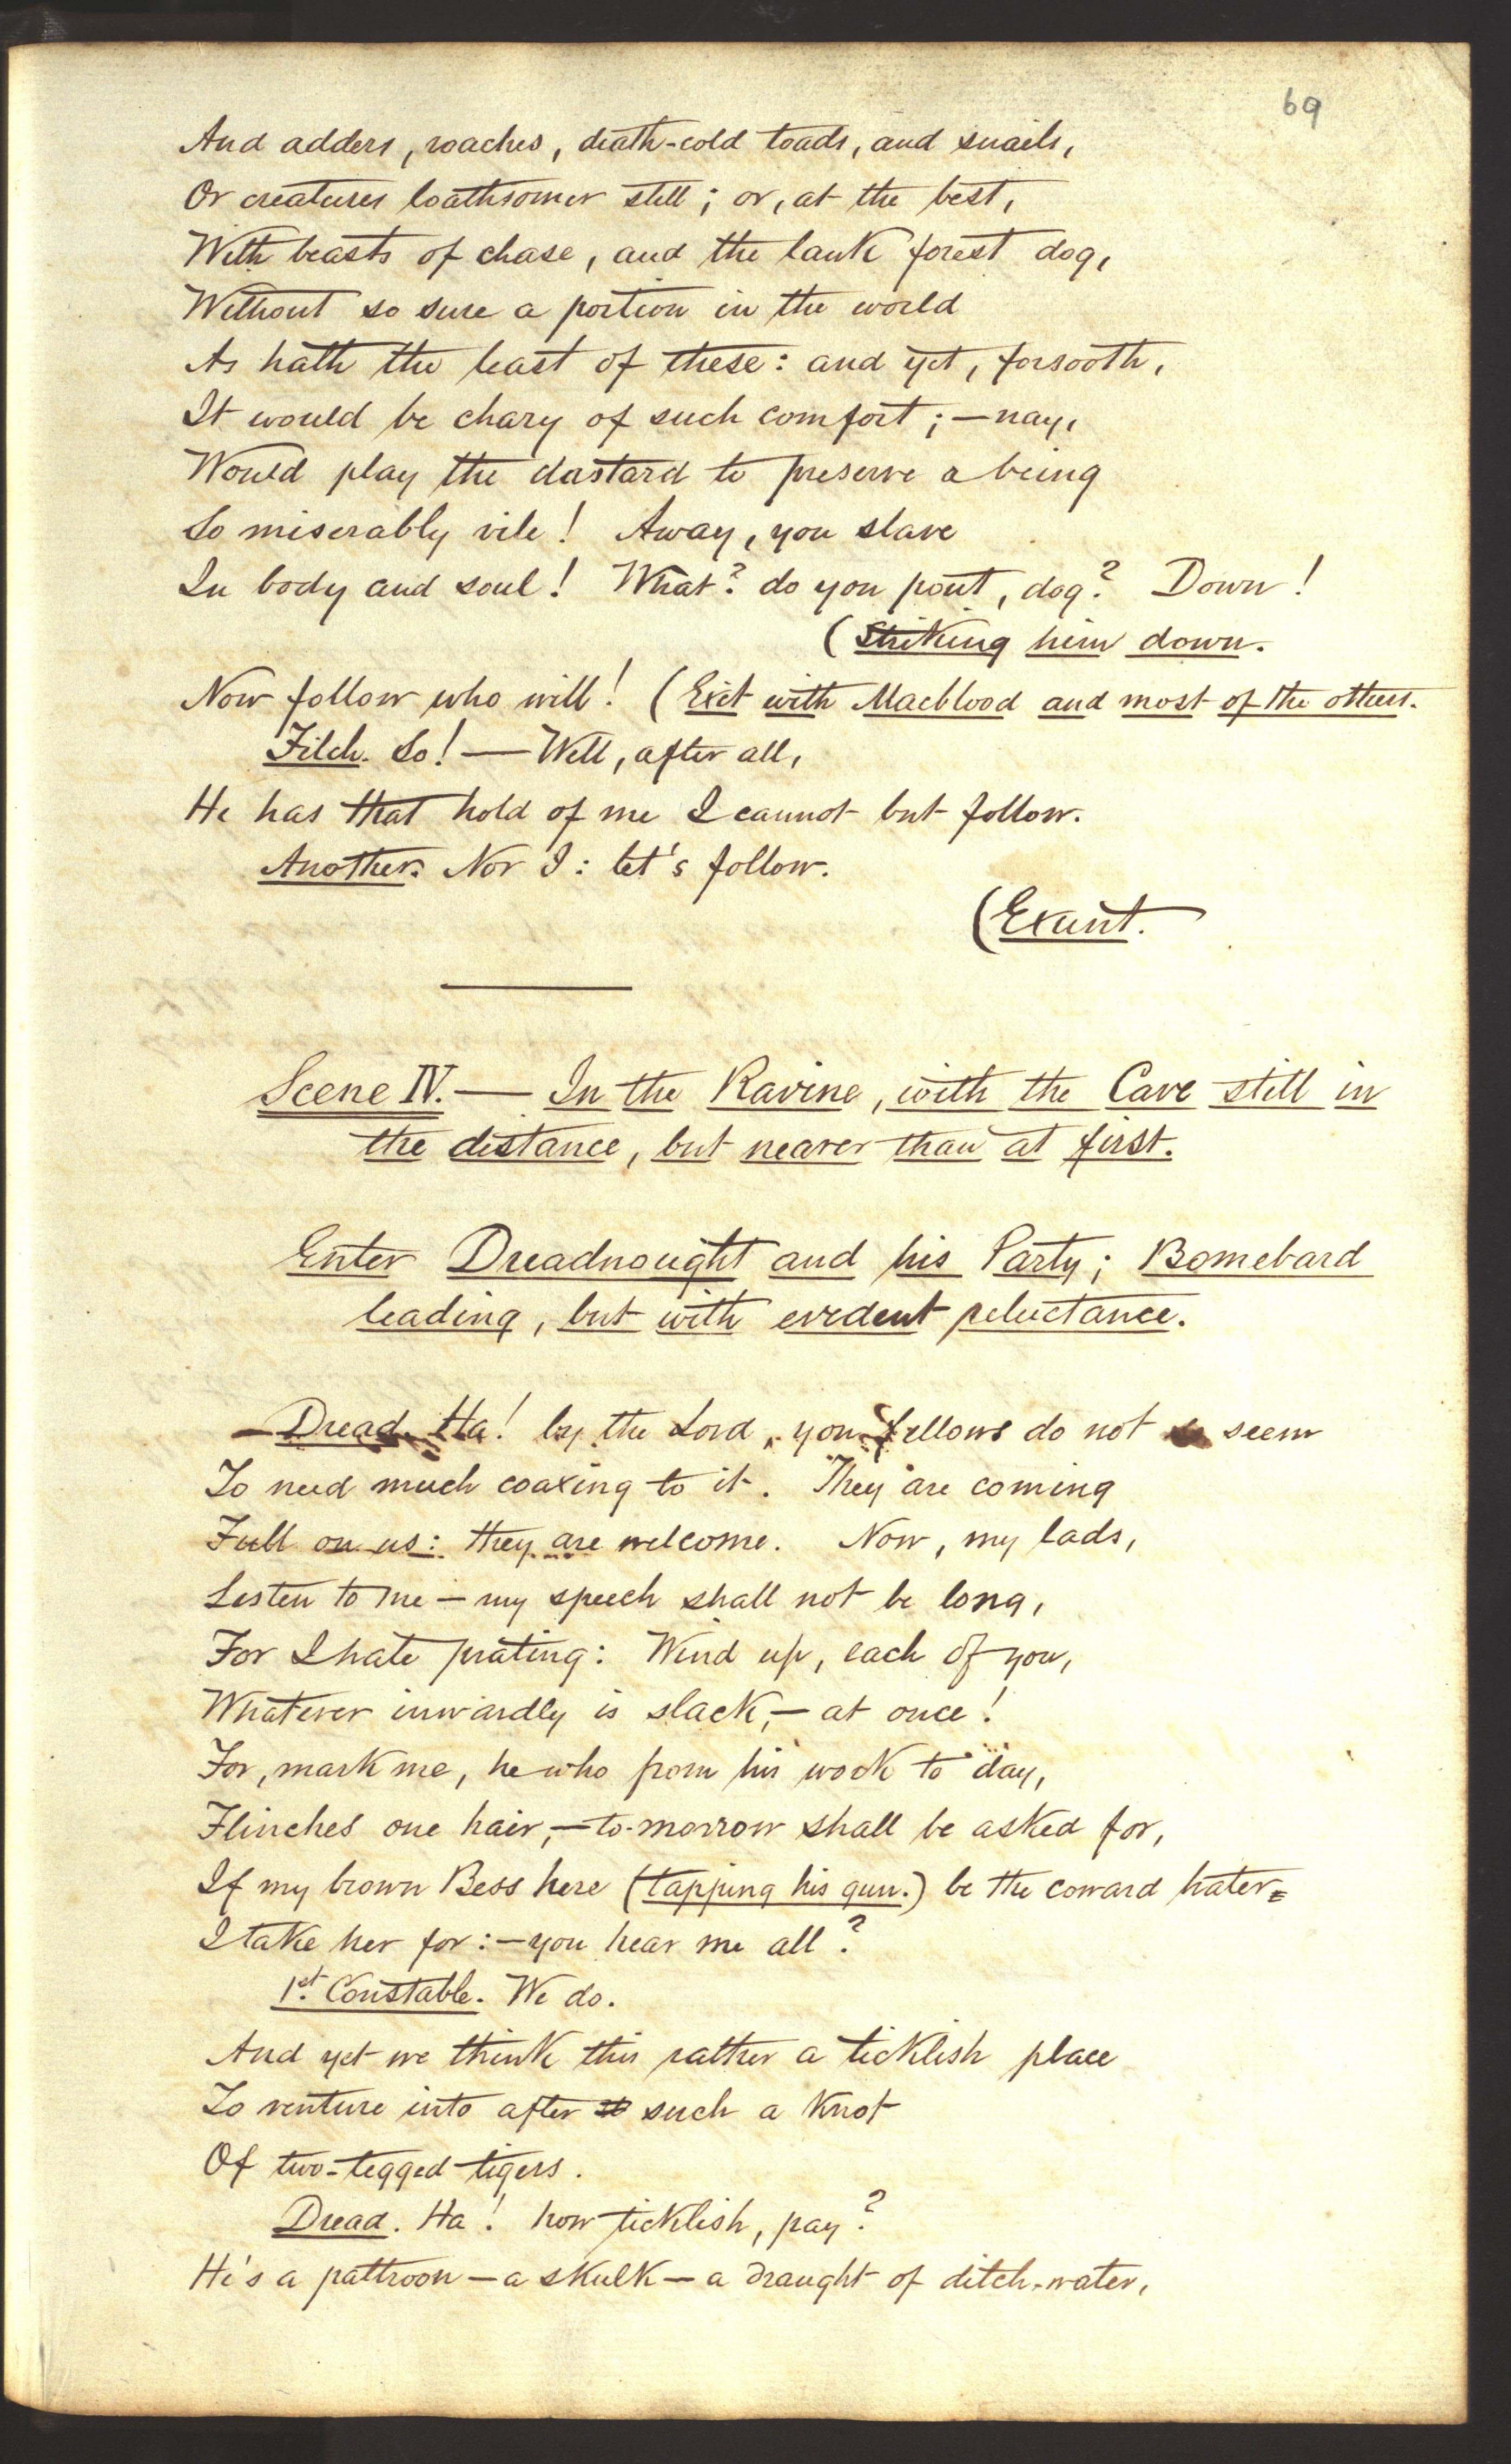 69
And adders, roaches, death-cold toads, and snails,
Or creatures loathsomer still; or, at the best,
With beasts of chase, and the lank forest dog,
Without so sure a portion in the world
As hath the least of these: and yet, forsooth,
It would be chary of such comfort; — nay,
Would play the dastard to preserve a being
So miserably vile! Away, you slave
In body and soul! What? do you pout, dog? Down!
(Striking him down.
Now follow who will! (Exit with Macblood and most of the others.
Filch. So! — Well, after all,
He has that hold of me I cannot but follow.
Another. Nor I: let's follow.
(Exeunt.
Scene IV. — In the Ravine, with the Cave still in
the distance, but nearer than at first.
Enter Dreadnought and his Party; Bomebard
leading, but with evident reluctance.
Dread. Ha! by the Lord, you fellows do not seem
To need much coaxing to it. They are coming
Full on us: they are welcome. Now, my lads,
Listen to me — my speech shall not be long,
For I hate prating: Wind up, each of you,
Whatever inwardly is slack, — at once!
For, mark me, he who from his work to day,
Flinches one hair, — to-morrow shall be asked for,
If my brown Bess here (tapping his gun.) be the coward hater
I take her for: — you hear me all?
1st. Constable. We do.
And yet we think this rather a ticklish place
To venture into after such a knot
Of two-legged tigers.
Dread. Ha! how ticklish, pay?
He's a paltroon — a skulk — a draught of ditch-water,